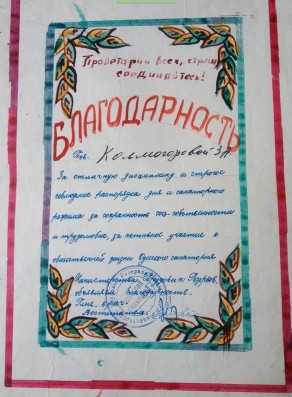 Пролетарии всех стран,
соединяйтесь!
БЛАГОДАРНОСТЬ
Тов. Колмогоровой З.А.
За отличную дисциплину и строгое
соблюдение распорядка дня и санаторного
режима за сохранность соц. собственности
и трудолюбие, за активное участие в
общественной жизни санатория
Министерства
объявляем благодарность.
Глав. врач.